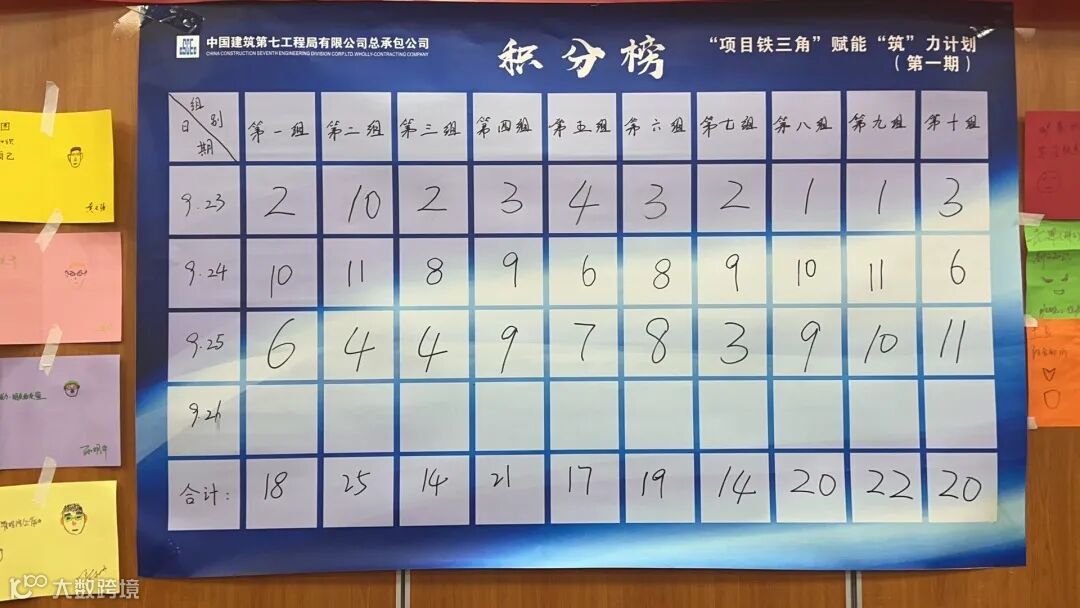 中国建筑第七工程局有限公司总承包公司
CHINA CONSTRUCTION SEVENTH ENGINEERING DIVISION CORP.LTD. WHOLLY-CONTRACTING COMPANY
积分榜
“项目铁三角”赋能“筑”力计划
（第一期）
组别 日期 第一组 第二组 第三组 第四组 第五组 第六组 第七组 第八组 第九组 第十组
9.23 2 10 2 3 4 3 2 1 1 3
9.24 10 11 8 9 6 8 9 10 11 6
9.25 6 4 4 9 7 8 3 9 10 11
9.26
合计: 18 25 14 21 17 19 14 20 22 20
大数跨境